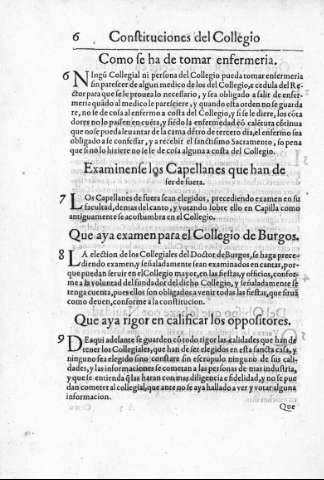 6 Constituciones del Collegio
Como se ha de tomar enfermeria.
6 NIngũ Collegial ni persona del Collegio pueda tomar enfermeria
sin parescer de algun medico de los del Collegio, e cedula del Re-
ctor para que se le prouea lo necesario, y sea obligado a salir de enfer-
meria quãdo al medico le paresciere, y quando esta orden no se guarda
re, no se le de cosa al enfermo a costa del Collegio, y si se le diere, los cõta
dores no lo passen en cuẽta, y siẽdo la enfermedad cõ calẽtura cõtinua
que no se pueda leuantar de la cama dẽtro de tercero dia, el enfermo sea
obligado a se confessar, y a recebir el sanctissimo Sacramento, so pena
que si no lo hiziere no se le de cosa alguna a costa del Collegio.
Examinense los Capellanes que han de
ser de fuera.
7 LOs Capellanes de fuera sean elegidos, precediendo examen en su
facultad, demas del canto, y votando sobre ello en Capilla como
antiguamente se acostumbra en el Collegio.
Que aya examen para el Collegio de Burgos.
8 LA election de los Collegiales del Doctor de Burgos, se haga prece-
diendo examen, y señaladamente sean examinados en cantar, por-
que puedan seruir en el Collegio mayor, en las fiestas, y officios, confor-
me a la voluntad del fundador del dicho Collegio, y señaladamente se
tenga cuenta, pues ellos son obligados a venir todas las fiestas, que siruã
como deuen, conforme a la constitucion.
Que aya rigor en calificar los oppositores.
9 DE aqui adelante se guarden cõ todo rigor las calidades que han de
tener los Collegiales, que han de ser elegidos en esta sancta casa, y
ninguno sea elegido sino constare sin escrupulo ninguno de sus cali-
dades, y las informaciones se cometan a las personas de mas industria,
y que se entienda q̃ las haran con mas diligencia e fidelidad, y no se pue
dan cometer al collegial, que ante no se aya hallado a ver y votar alguna
informacion.
Que